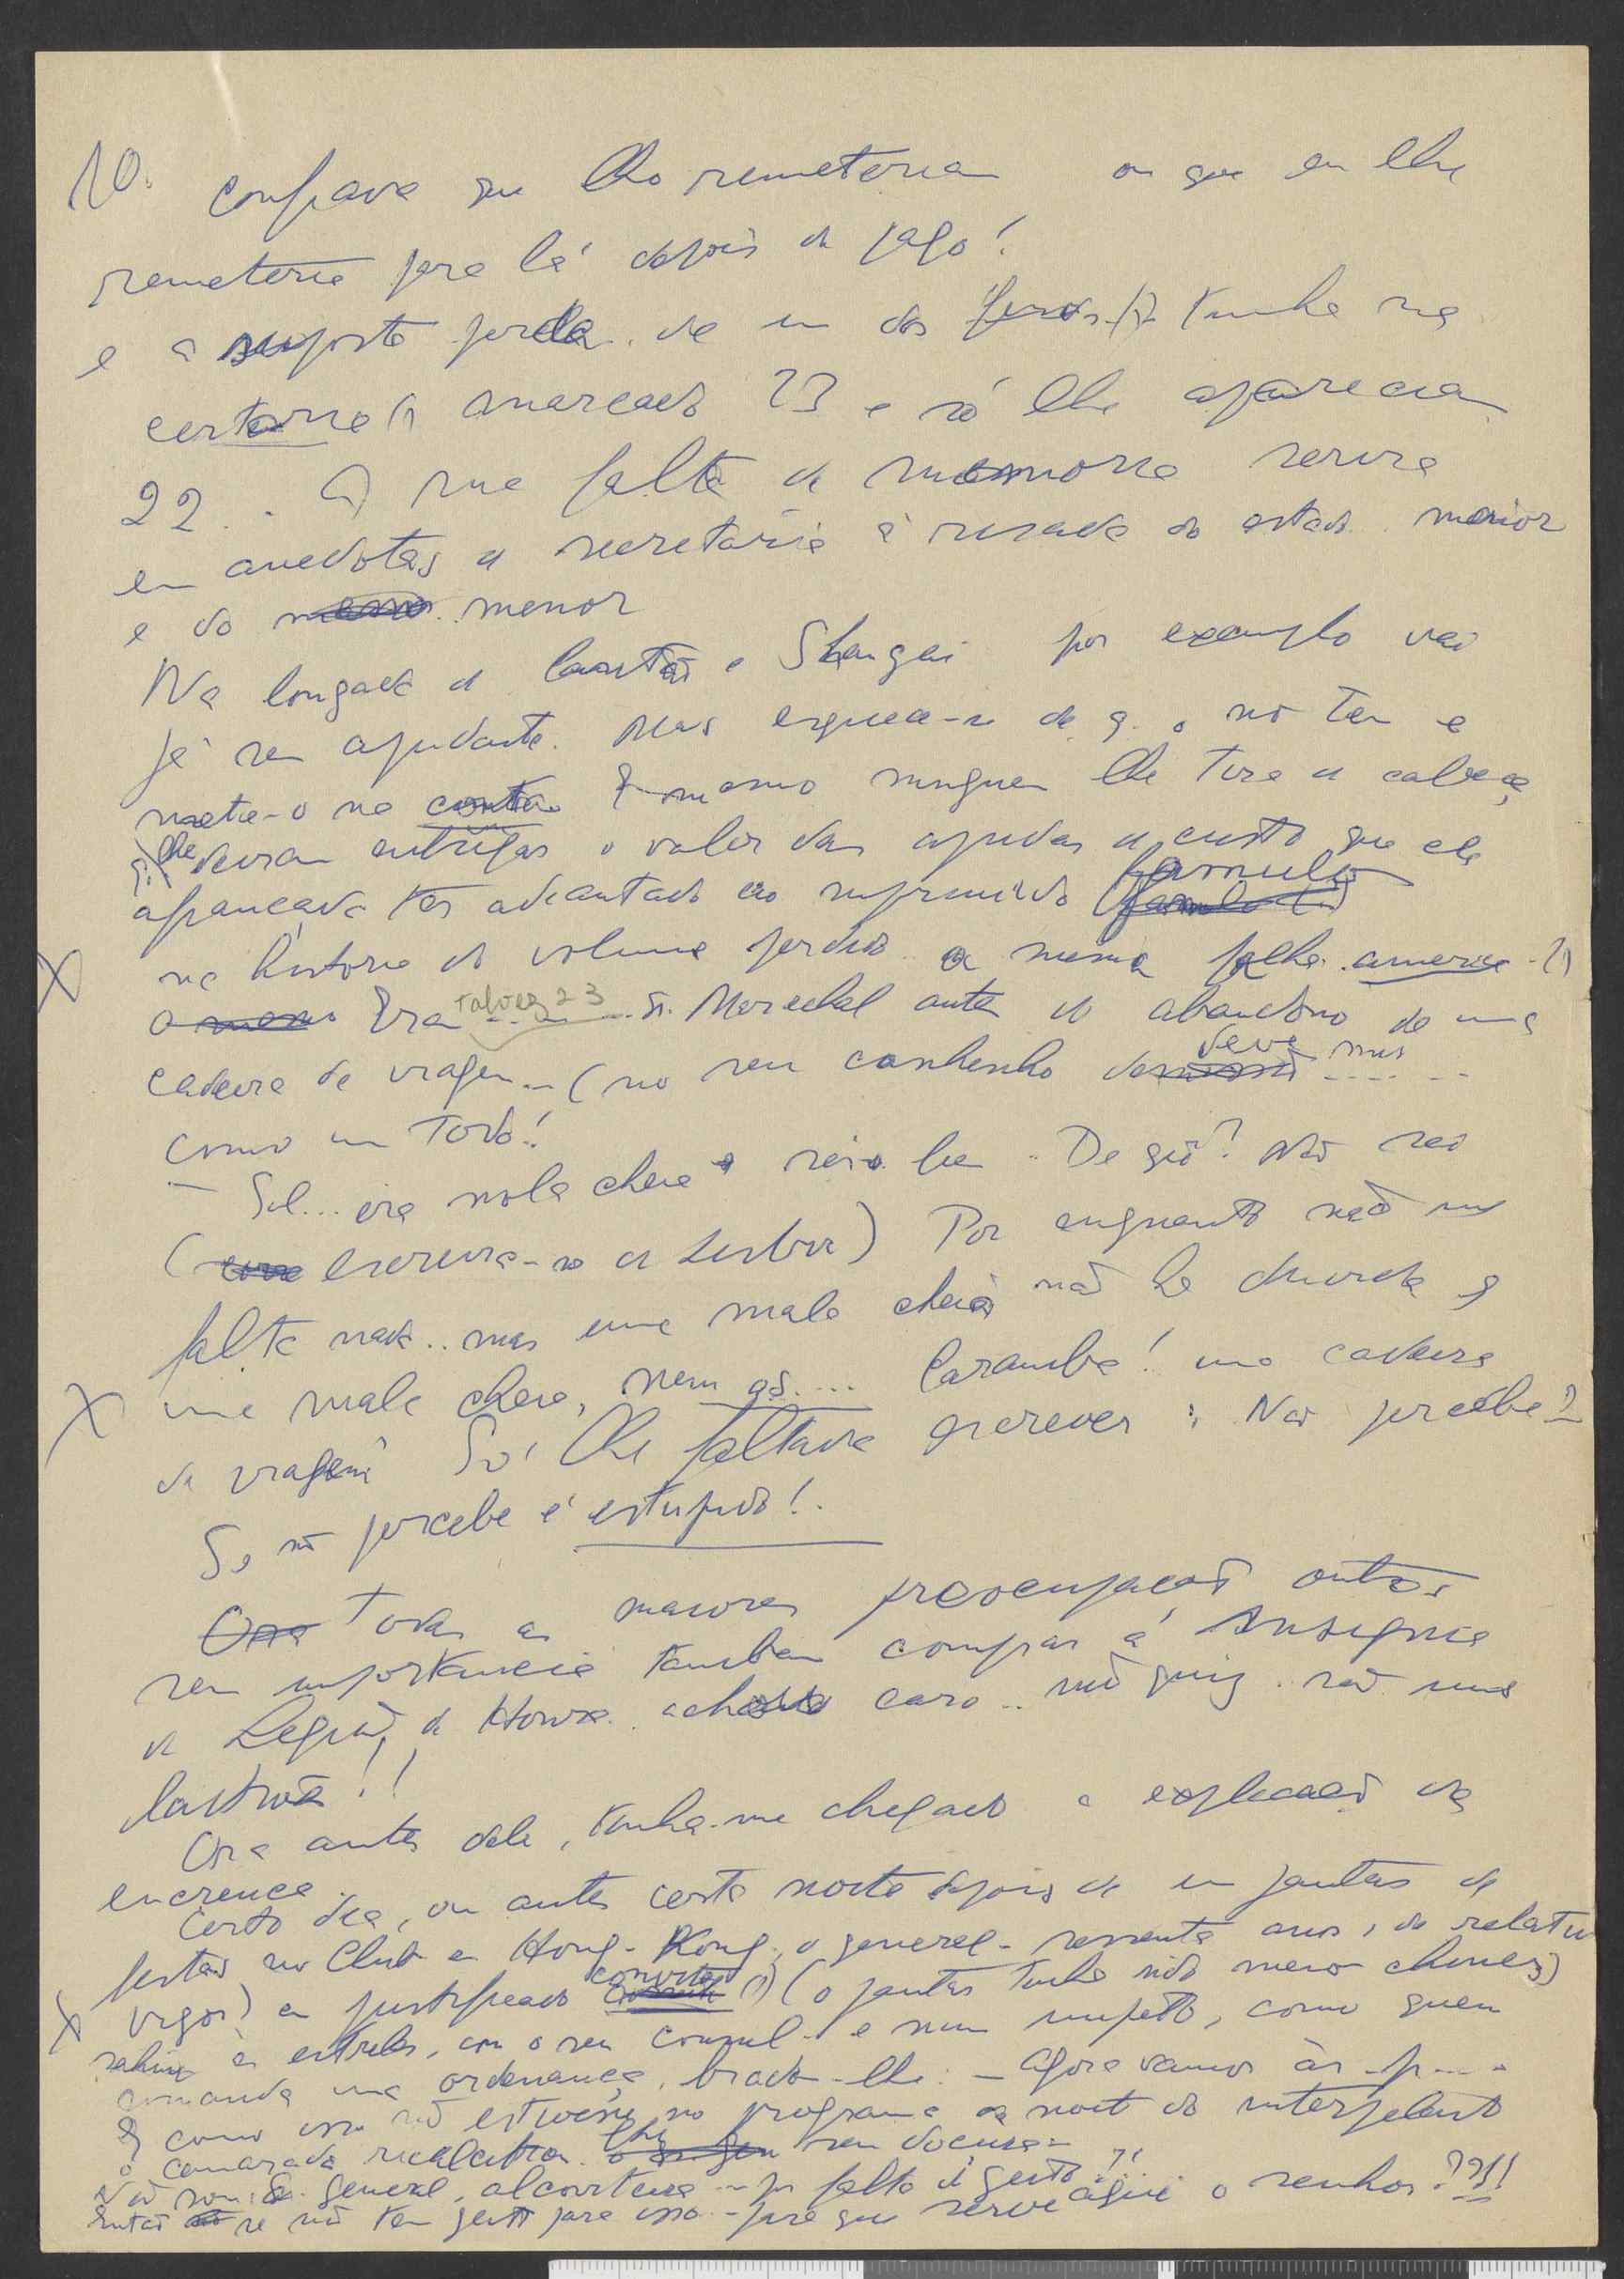 10. confiava que lho remeteriam ou que eu lhe
remeteria para lá depois de pago!
e a suposta perda de um dos (?) tinha na
marcado 23 e só lhe apareciam
22 .. A sua falta de memoria servia
em anedotas á risada do estado maior
e do menor
Na longada de Cantão e Shangai por exemplo vai
já sem ajudante. Mas esquece-se de q. o não tem e
mete-o na conta E mesmo ninguem lhe tira da cabeça
q. lhe deviam entregar o valor das ajudas de custo que ele
afiançava ter adeantado ao suprimido famulo
na historia do volume perdido a mesma falha
Eram talvez 23 Sr. Marechal antes do abandono de uma
cadeira de viagem.. (no seu canhenho deve mus
como um todo!
— Sil... era mala cheia e seio bem .. De quê? Não sei
(escrevia-se de Lisboa) Por enquanto não me
falta nada .. mas uma mala cheia não ha duvida q
uma mala cheia, nem as .... Caramba! uma cadeira
de viagem Só lhe faltava escrever : Não percebe?
Se não percebe é estupido!
Ora Todas as maiores preocupações outras
sem importancia tambem comprar a insignia
da Legião de Honra achou caro .. não quiz . são uns
ladrões!!
Ora antes dele, tinha-me chegado a explicação da
encrenca.
Certo dia, ou antes certa noite depois de um jantar de
festas no Club em Hong-Kong, o general - sessenta anos, de relativo
vigor) em justificado convite (?) (o jantar tinha sido meio chinez)
sahiu ás estrelas, com o seu consul e num impeto, como quem
comanda uma ordenança, brada-lhe: — Agora vamos ás p....
E como isso não estivesse no programa da noite do interpelado
o camarada recalcitrou lhe sem
Não sou Sr. General, alcoviteiro ... por falta de geito!!
Então se não tem geito para isso - para que serve aqui o senhor???!!